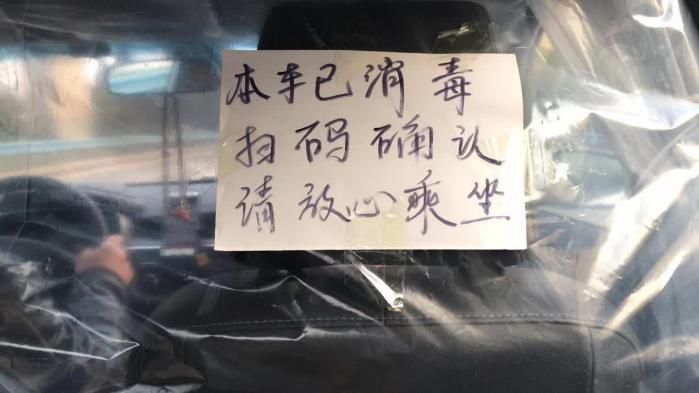 本车已消毒
扫码确认
请放心乘坐